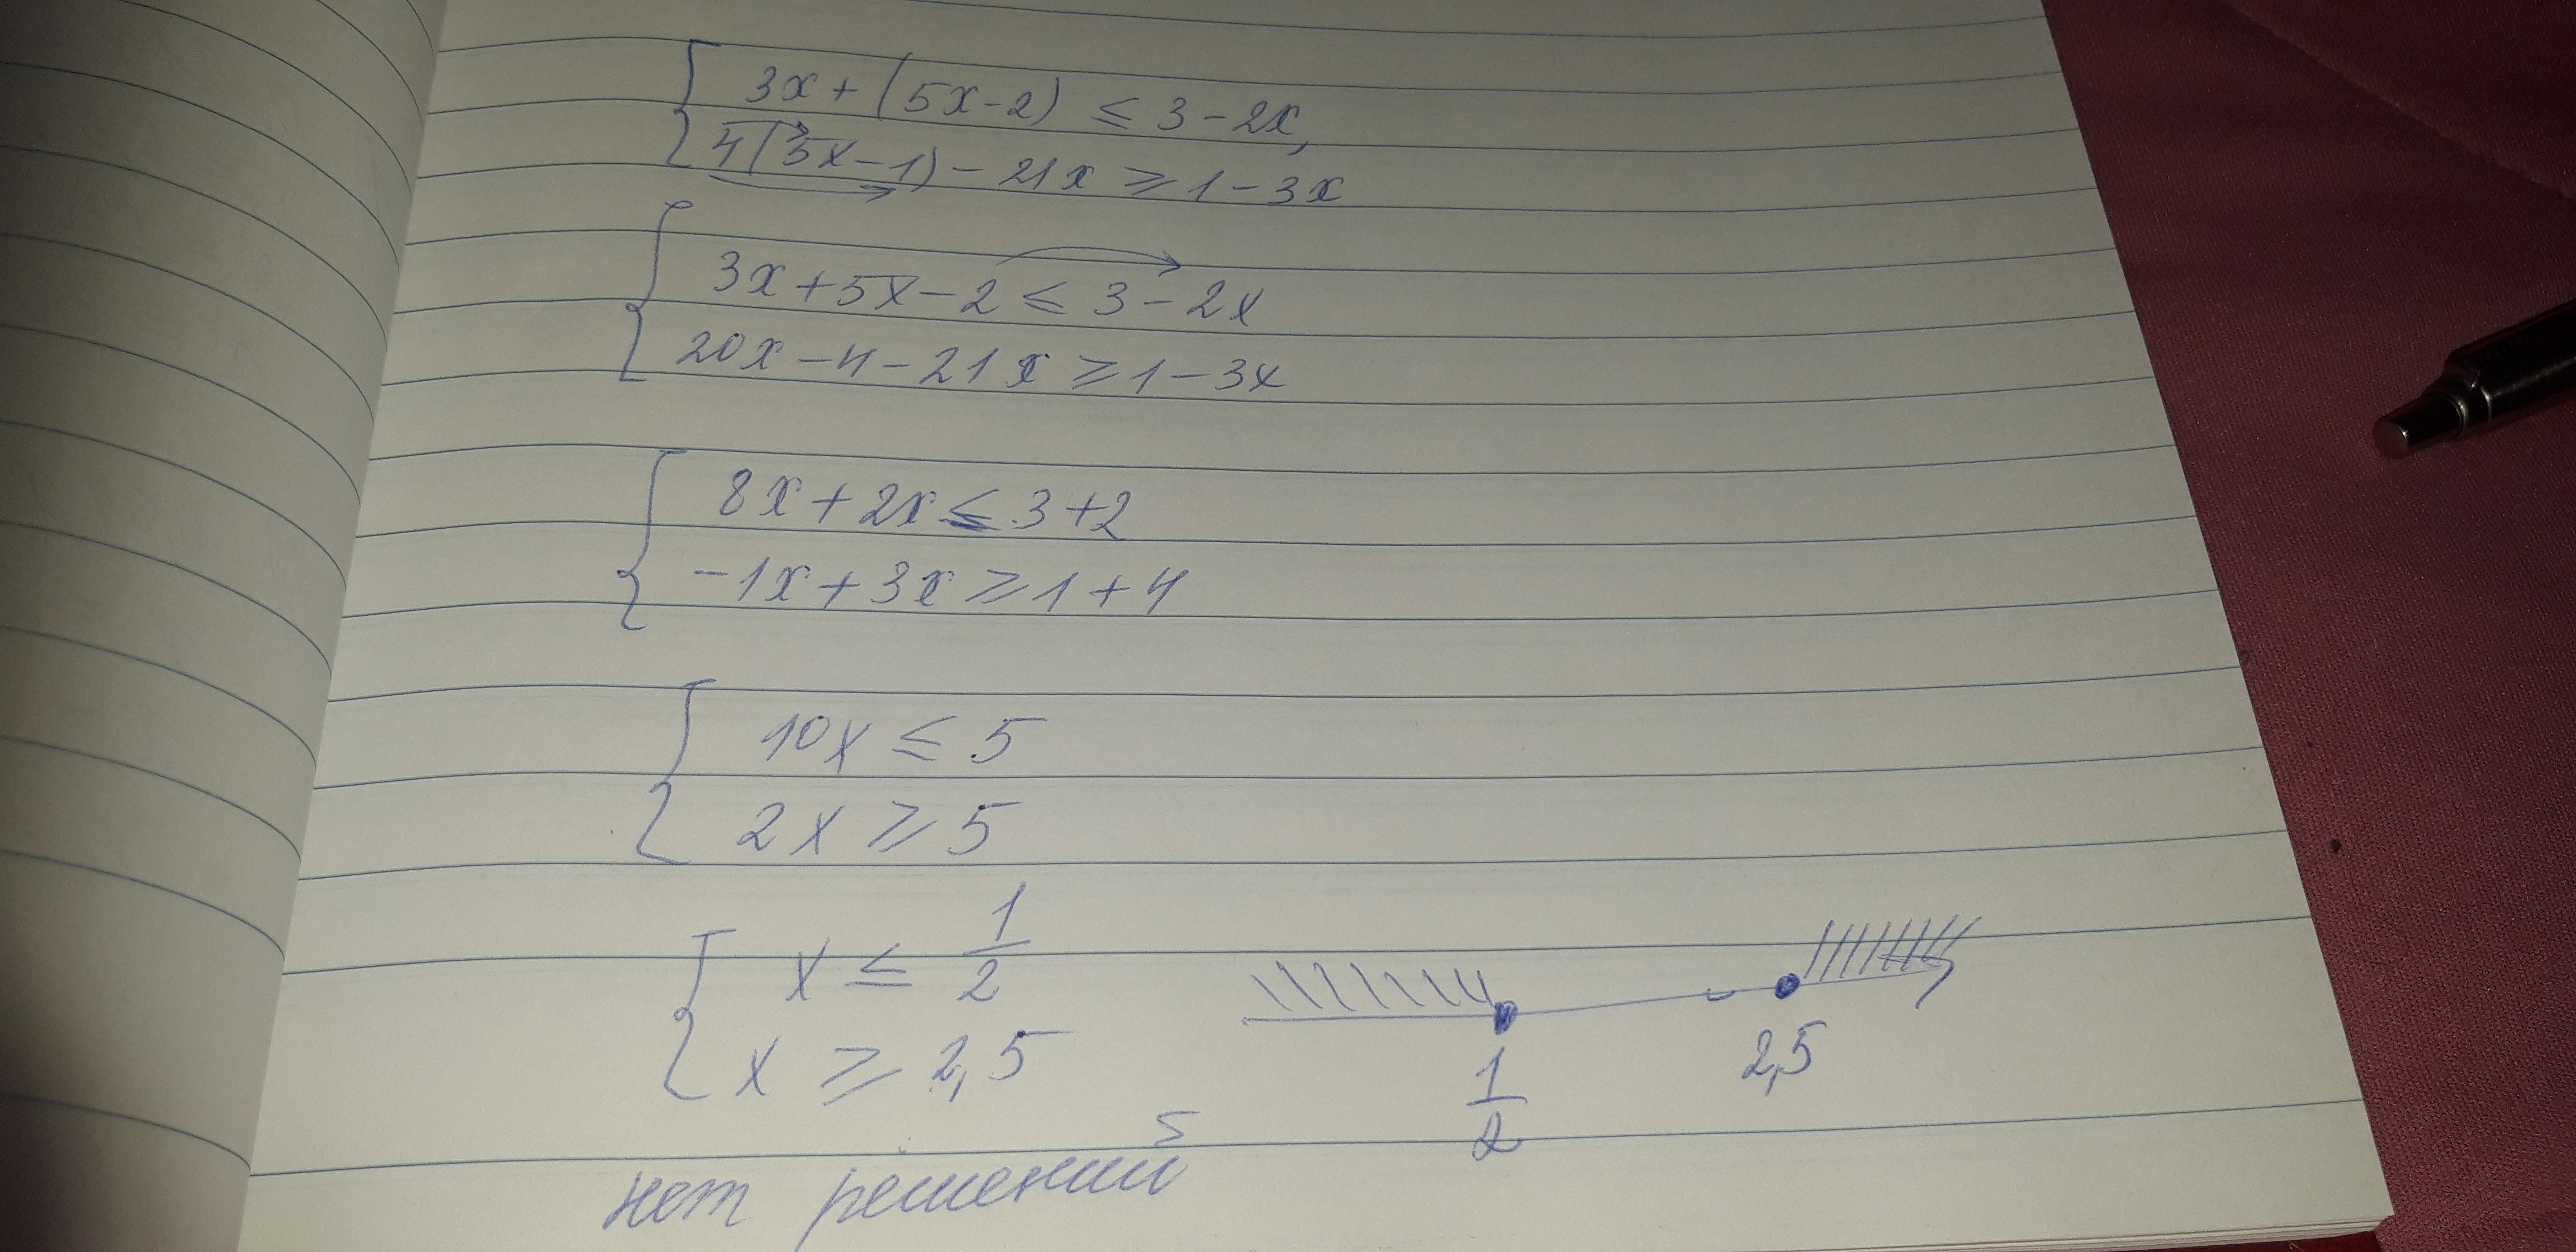 3x + (5x-2) ≤ 3 - 2x,
4(5x-1) - 21x ≥ 1 - 3x
3x + 5x - 2 ≤ 3 - 2x
20x - 4 - 21x ≥ 1 - 3x
8x + 2x ≤ 3 + 2
-1x + 3x ≥ 1 + 4
10x ≤ 5
2x ≥ 5
x ≤ 1/2
x ≥ 2,5
1/2 2,5
нет решений